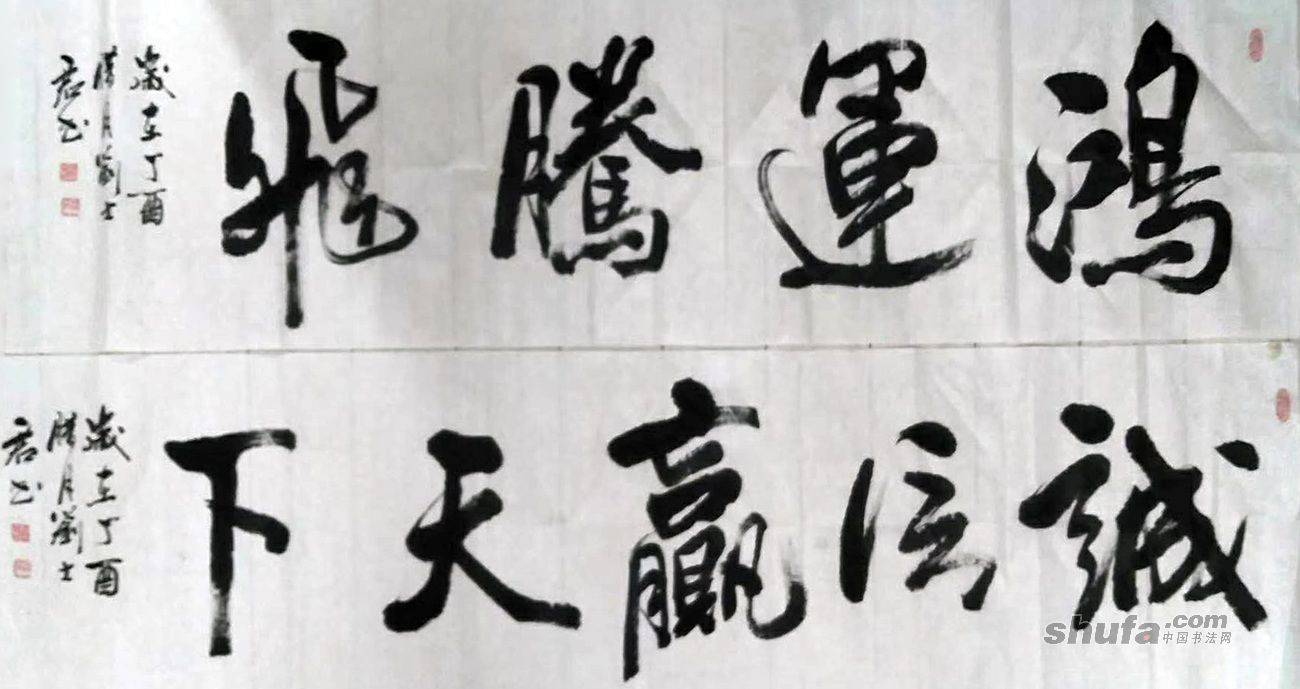 鴻運騰飛
歲在丁酉
臘月劉士
君书
誠信贏天下
歲在丁酉
臘月劉士
君书
shufa.com
中国书法网